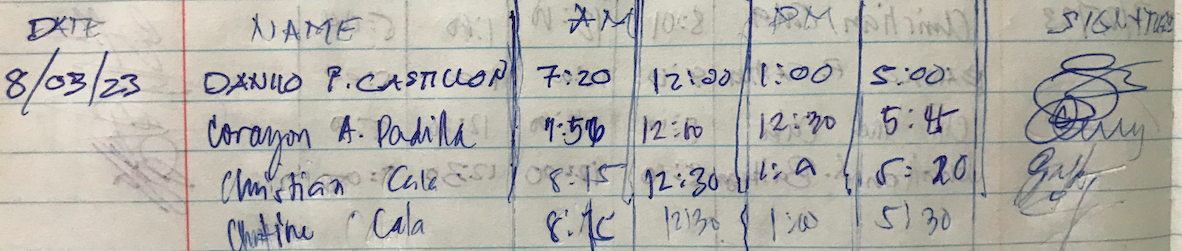 DATE NAME AM P.M SIGNATURE
8/03/23 DANILO P. CASTILLON 7:20 12:00 1:00 5:00
Corazon A. Padilla 7:56 12:00 12:30 5:45
Christian Cala 8:15 12:30 1:00 5:20
Christine Cala 8:15 12:30 1:00 5:30